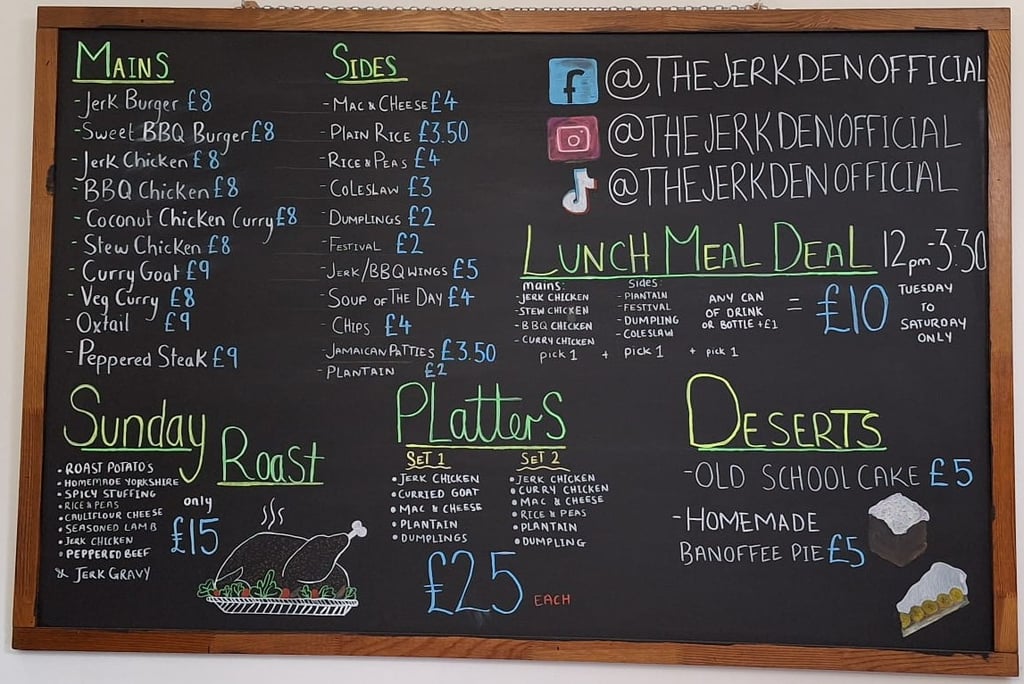 MAINS
-Jerk Burger £8
-Sweet BBQ Burger £8
-Jerk Chicken £8
-BBQ Chicken £8
-Coconut Chicken Curry £8
-Stew Chicken £8
-Curry Goat £9
-Veg Curry £8
-Oxtail £9
-Peppered Steak £9
SIDES
-MAC & CHEESE £4
-PLAIN RICE £3.50
-RICE & PEAS £4
-COLESLAW £3
-DUMPLINGS £2
-FESTIVAL £2
-JERK/BBQ WINGS £5
-SOUP OF THE DAY £4
-CHIPS £4
-JAMAICAN PATTIES £3.50
-PLANTAIN £2
f @THEJERKDENOFFICIAL
@THEJERKDENOFFICIAL
@THEJERKDENOFFICIAL
LUNCH MEAL DEAL 12pm-3.30
mains:
-JERK CHICKEN
-STEW CHICKEN
-BBQ CHICKEN
-CURRY CHICKEN
PICK 1
sides:
-PLANTAIN
-FESTIVAL
-DUMPLING
-COLESLAW
+ PICK 1
ANY CAN
OF DRINK
OR BOTTLE +£1
+ PICK 1
= £10
TUESDAY
TO
SATURDAY
ONLY
Sunday Roast
• ROAST POTATOS
• HOMEMADE YORKSHIRE
• SPICY STUFFING
• RICE & PEAS
• CAULIFLOUR CHEESE
• SEASONED LAMB
• JERK CHICKEN
• PEPPERED BEEF
& JERK GRAVY
only
£15
PLatterS
SET 1
• JERK CHICKEN
• CURRIED GOAT
• MAC & CHEESE
• PLANTAIN
• DUMPLINGS
SET 2
• JERK CHICKEN
• CURRY CHICKEN
• MAC & CHEESE
• RICE & PEAS
• PLANTAIN
• DUMPLING
£25 EACH
DESERTS
-OLD SCHOOL CAKE £5
-HOMEMADE
BANOFFEE PIE £5